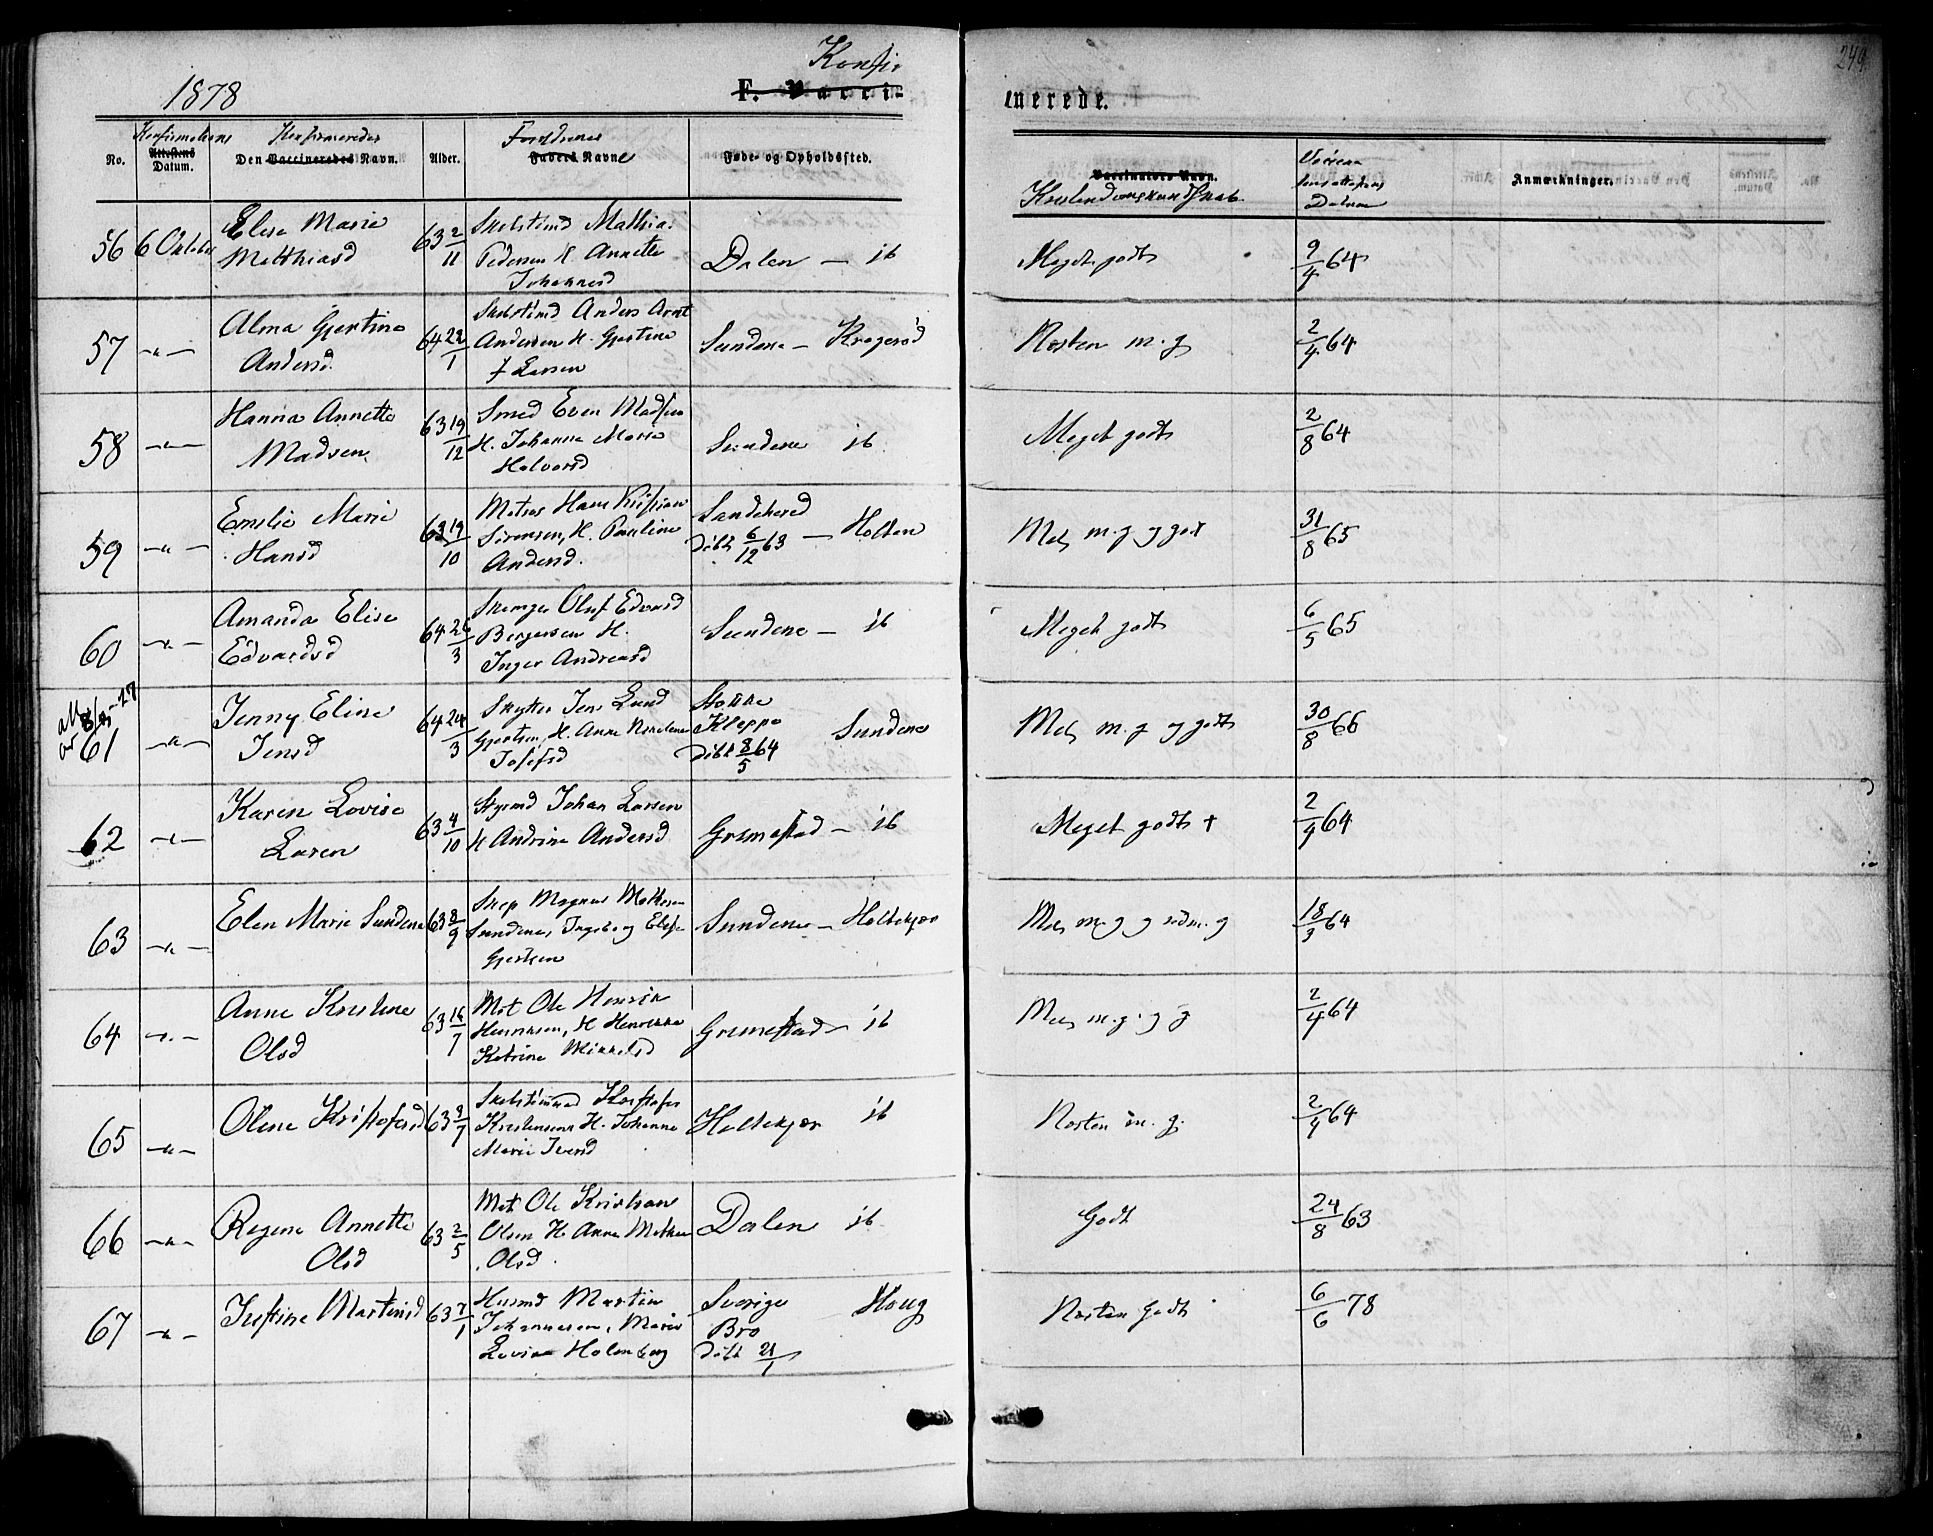 1878
Konfir
F. Vacci-
nerede.
249
No.
Konfirmations
Attestens
Datum.
Konfirmeredes
Den Vaccineredes Navn.
Alder.
Forældrenes
Faders Navne
Føde- og Opholdssted.
Vaccinators Navn.
Kristendomskundskab.
Datum
Anmærkninger.
56 6 Oktober Elise Marie 63 2/11
Matthiasd
Mathias
Pedersen H. Annette
Johannesd
Dalen — ib
Meget godt
9/4 64
57 —"— Alma Gjertine 64 22/1
Andersd.
Anders Arnt
Andersen H. Gjertine
f Larsen
Sundene — Kragerød
Næsten m. g
2/4 64
58 —"— Hanna Annette 63 19/12
Madsen
Smed Even Madsen
H. Johanne Marie
Halvorsd
Sundene ib
Meget godt
2/8 64
59 —"— Emelie Marie 63 19/10
Hansd
Matros Hans Kristian
Sørensen, H. Pauline
Andersd.
Sandeherred
Døbt 6/12 63 — Holten
Mel, m. g og godt
31/8 65
60 —"— Amanda Elise 64 26/3
Edvardsd
Oluf Edvard
Bergersen H.
Inger Andreasd
Sundene — ib
Meget godt
6/5 65
61 —"— Jenny Eline 64 24/3
Jensd
Jens Lund
Gjertsen, H. Anne
Josefsd
Stokke
Kleppe
Døbt 8/5 64
Sundene
Mel, m. g og godt
30/8 66
62 —"— Karen Lovise 63 4/10
Larsen
Styrmd Johan Larsen
H Andrine Andersd
Grimestad — ib
Meget godt +
2/4 64
63 —"— Elen Marie Sundene 63 8/9
Skip Magnus Mathesen
Sundene, Ingeborg Elise
Gjertsen
Sundene — Holtekjær
18/3 64
64 —"— Anne Kristine 63 16/7
Olsd
Mat Ole Henrik
Henriksen, H Henrikka
Katrine Mikkelsd
Grimestad — ib
Mel, m. g. og g
2/4 64
65 —"— Oline Kristofersd 63 9/7
Kristofer
Kristensen H. Johanne
Marie Iversd
Holtekjær ib
Næsten m. g.
2/4 64
66 —"— Regine Annette 63 2/5
Olsd
Mat Ole Kristian
Olsen H. Anne Mathea
Olsd.
Dalen ib
Godt
24/8 63
67 —"— Justine Martinsd 63 7/1
Husmd Martin
Johannesen, Marie
Lovise Holmberg
Sverige
Bro
Døbt 21/1
Houg
Næsten Godt
6/6 78